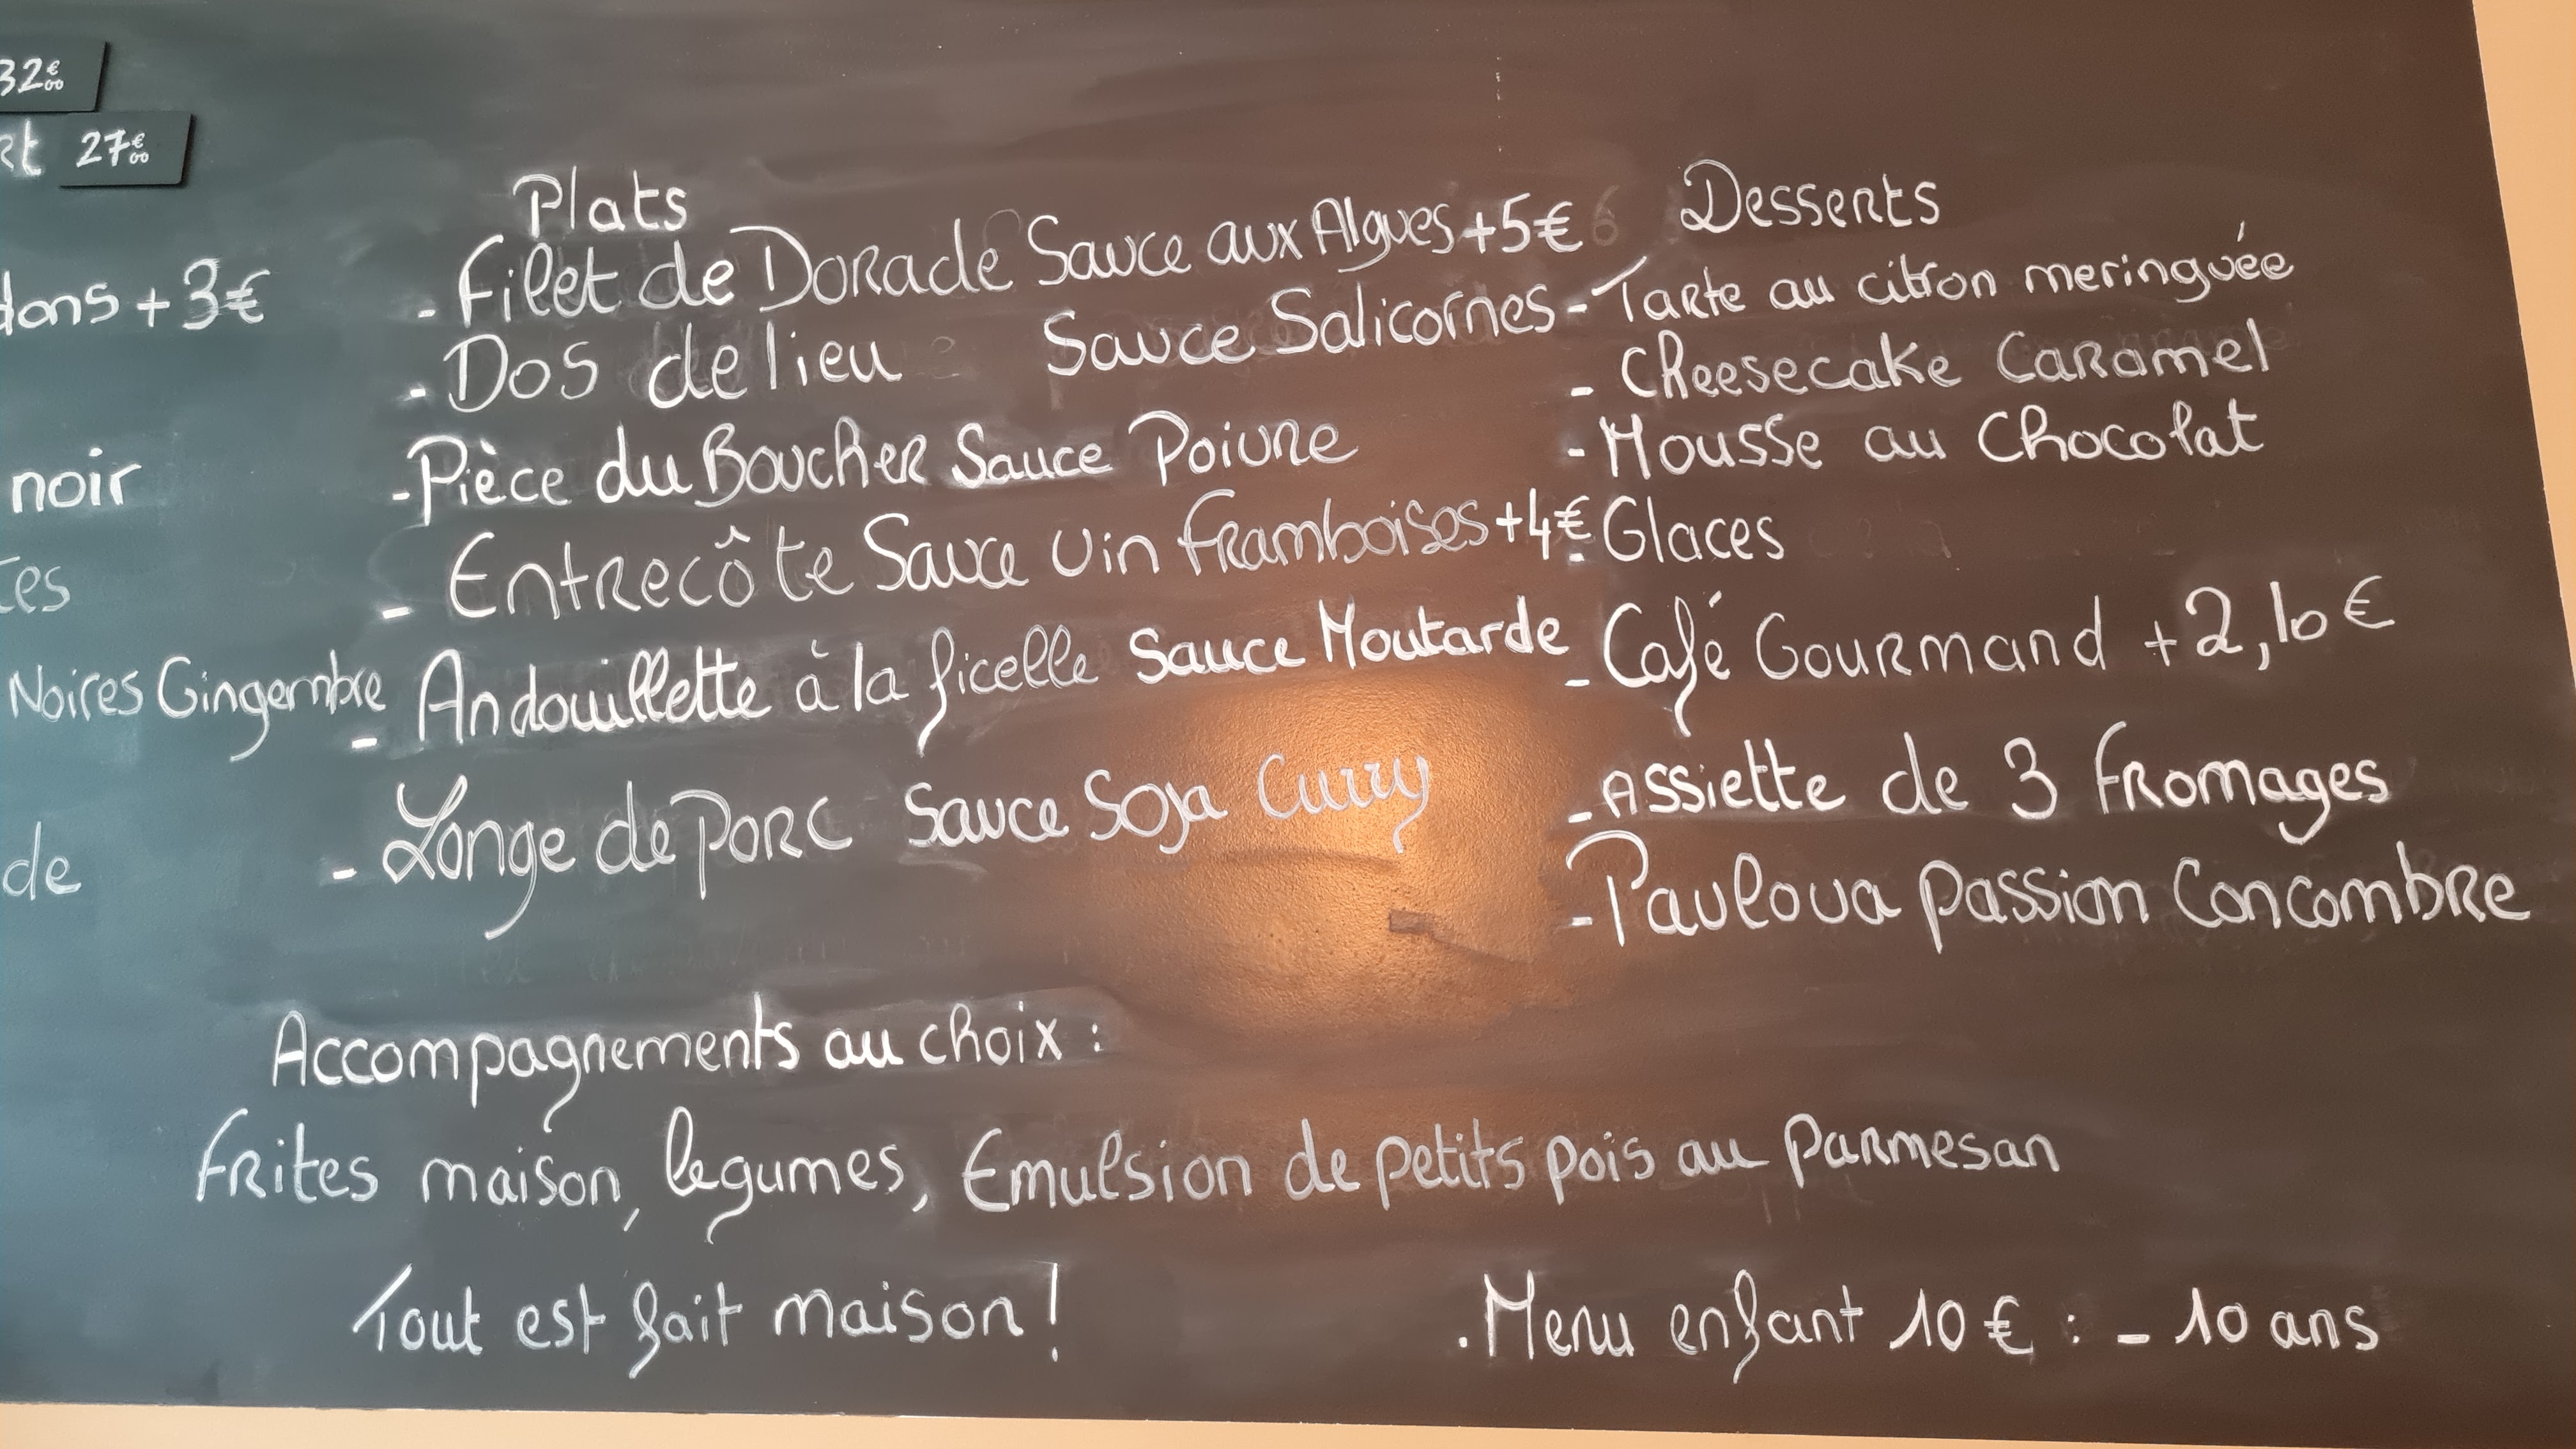 32€00
27€00
+3€
noir
Noires Gingembre
de
Plats
- Filet de Dorade Sauce aux Algues +5€
- Dos de lieu Sauce Salicornes
- Pièce du Boucher Sauce Poivre
- Entrecôte Sauce vin framboises +4€
- Andouillette à la ficelle Sauce Moutarde
- Longe de porc Sauce Soja Curry
Desserts
- Tarte au citron meringuée
- Cheesecake Caramel
- Mousse au Chocolat
- Glaces
- Café Gourmand +2,10€
- Assiette de 3 fromages
- Pavlova passion Concombre
Accompagnements au choix :
frites maison, légumes, Emulsion de petits pois au parmesan
Tout est fait maison !
. Menu enfant 10€ : - 10 ans